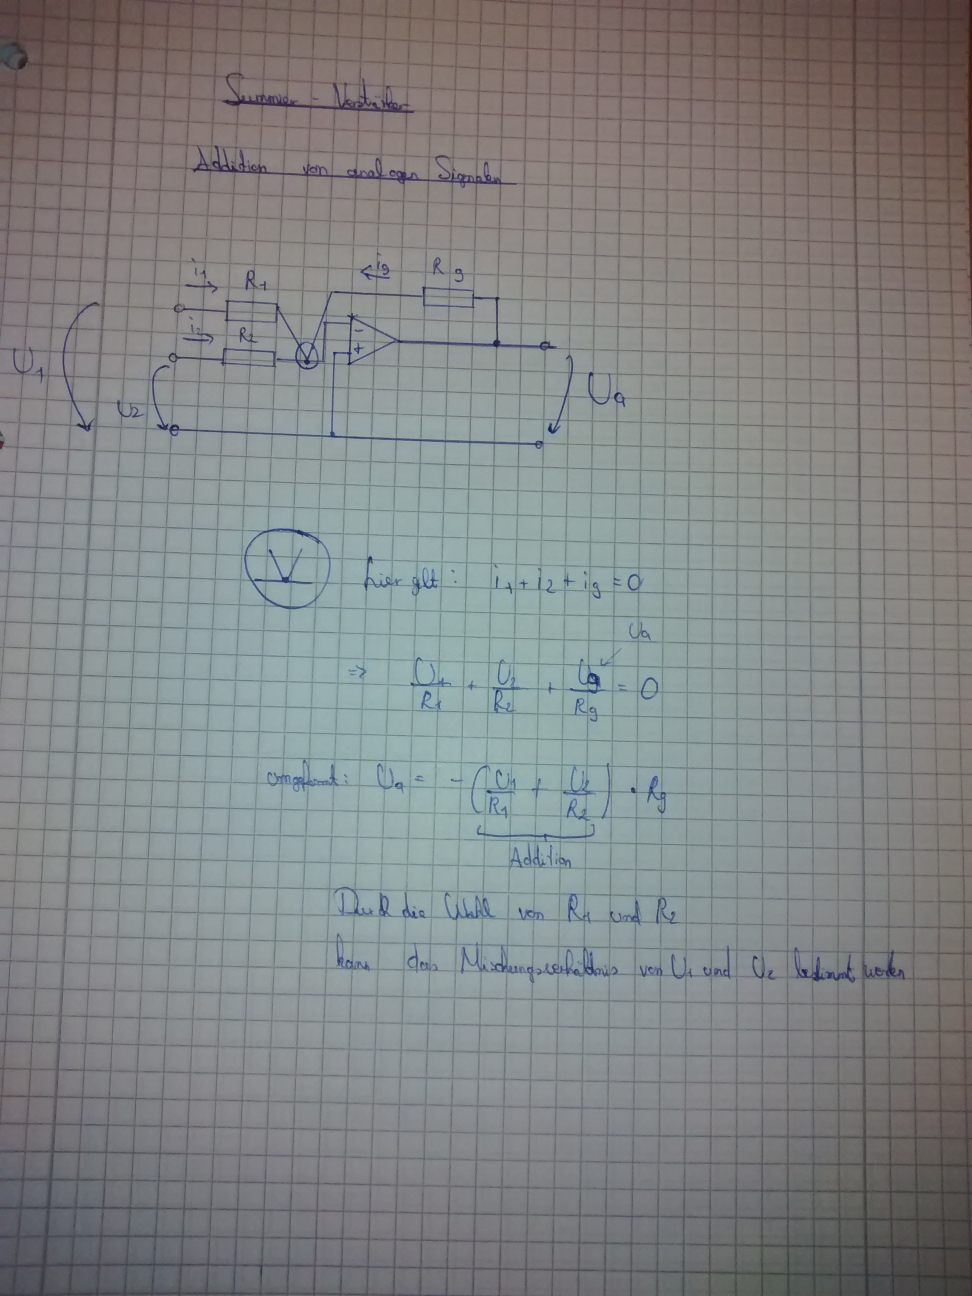 Summier - Verstärker
Addition von analogen Signalen
i1
R1
ig
Rg
i2
R2
-
+
U1
U2
Ua
hier glt: i1 + i2 + ig = 0
Ua
=> U1/R1 + U2/R2 + Ug/Rg = 0
umgeformt: Ua = - (U1/R1 + U2/R2) · Rg
Addition
Durch die Wahl von R1 und R2
kann das Mischungsverhältnis von U1 und U2 bestimmt werden